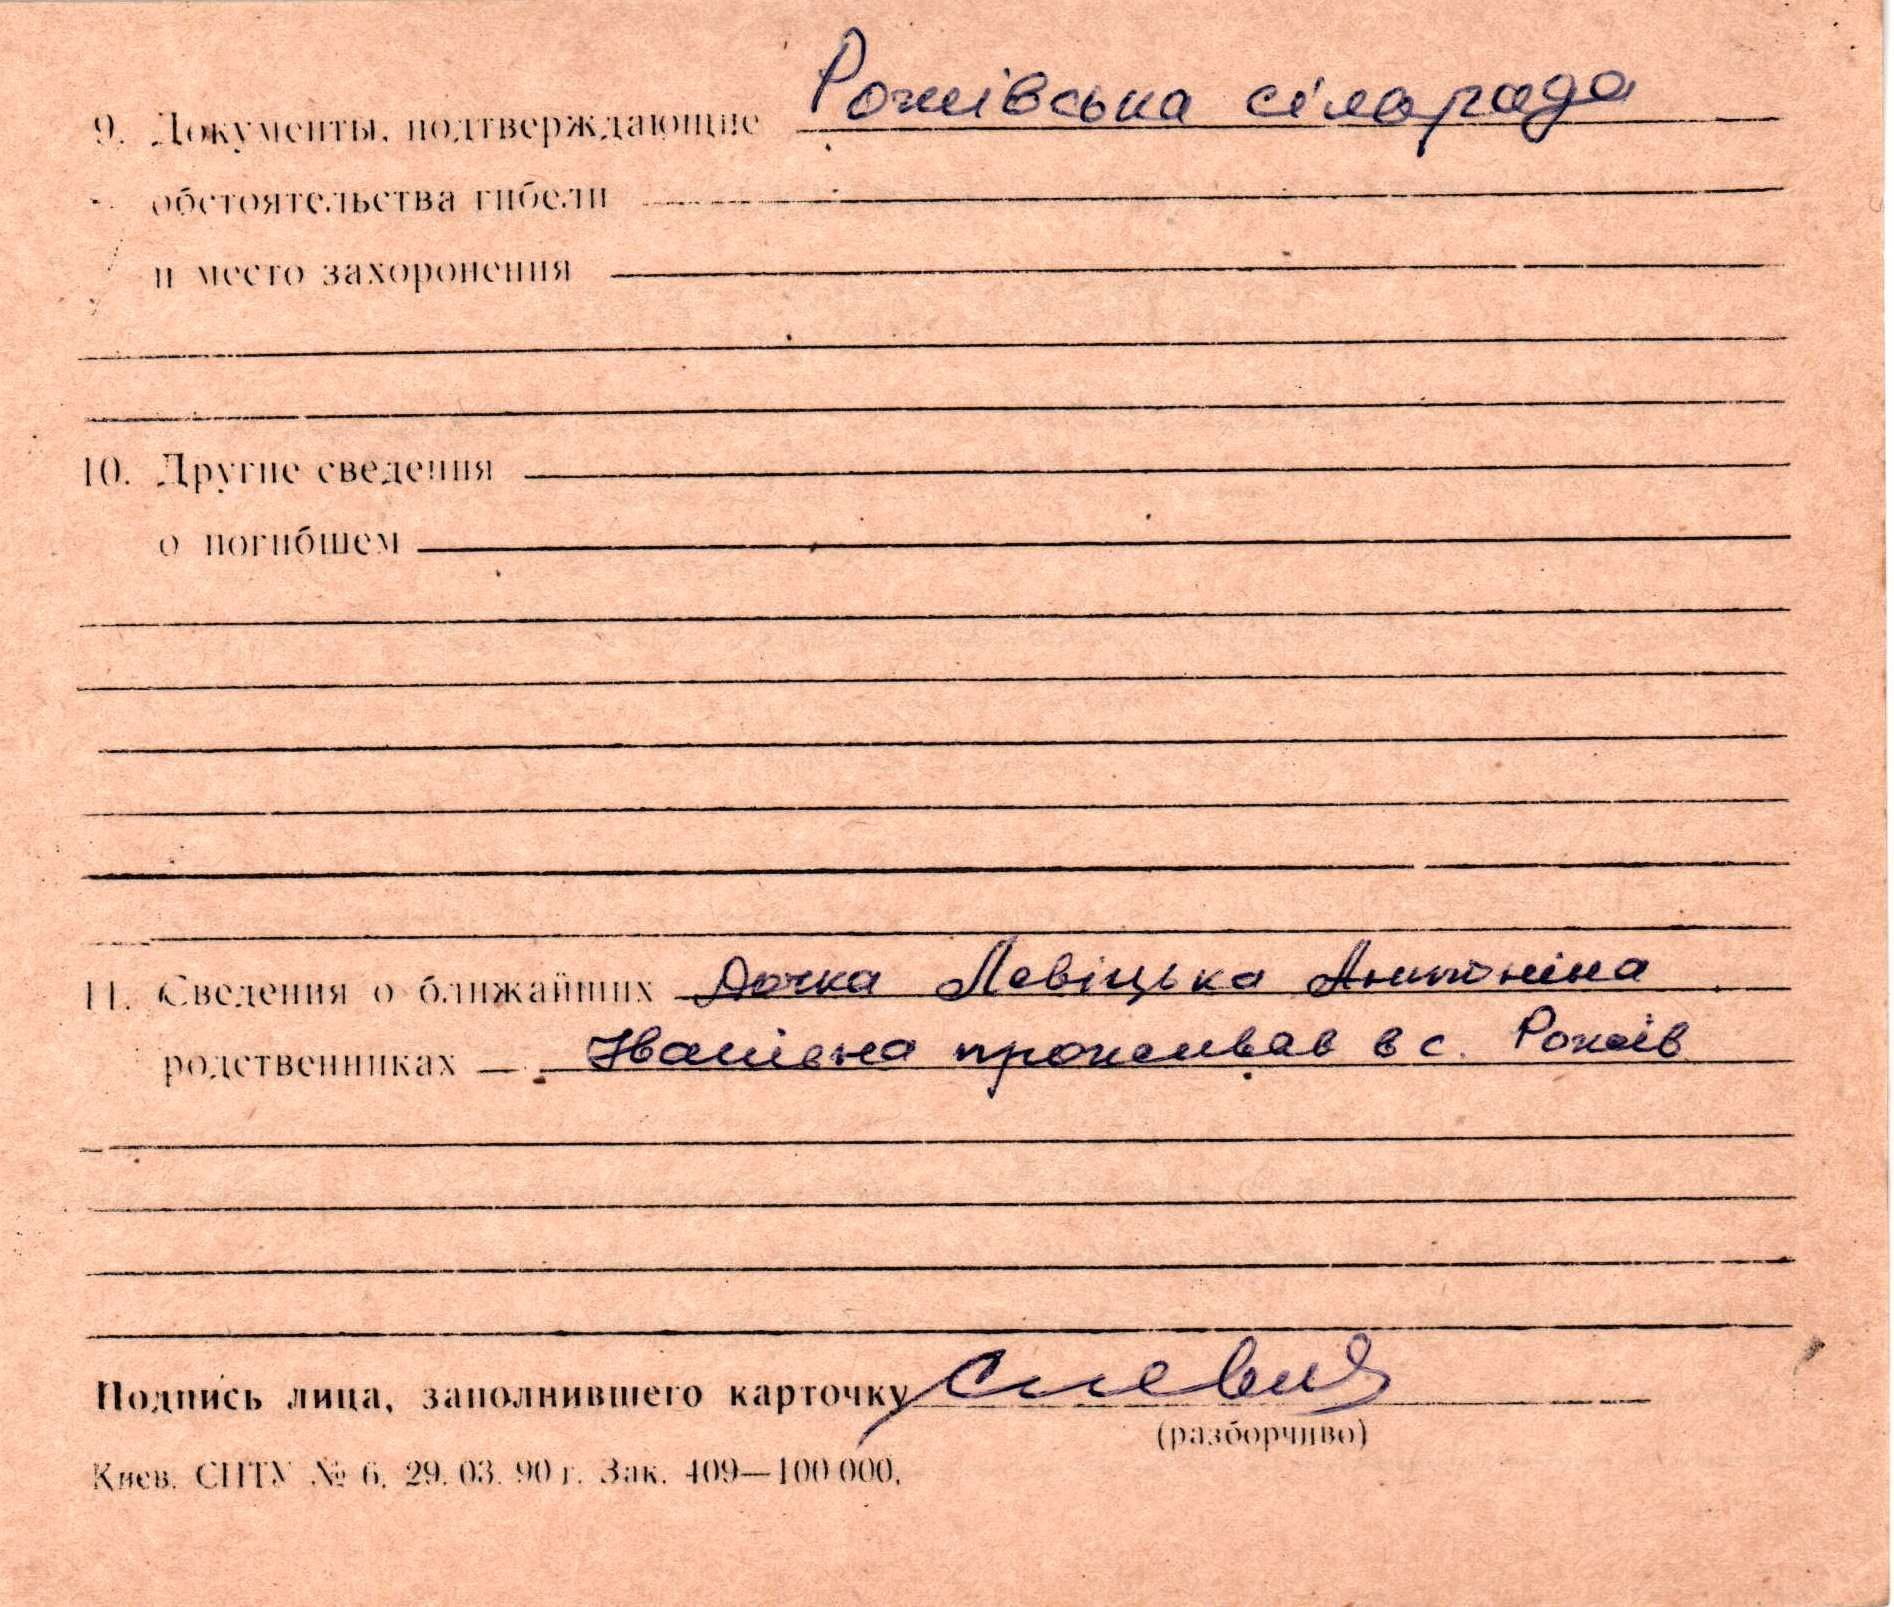 9. Документы, подтверждающие Рожівська сілорада
обстоятельства гибели
и место захоронения
10. Другие сведения
о погибшем
11. Сведения о ближайших Дочка Левіцька Антоніна
родственниках Іванівна проживав в с. Рожів
Подпись лица, заполнившего карточку
(разборчиво)
Киев. СПТУ № 6. 29. 03. 90 г. Зак. 409—100 000.